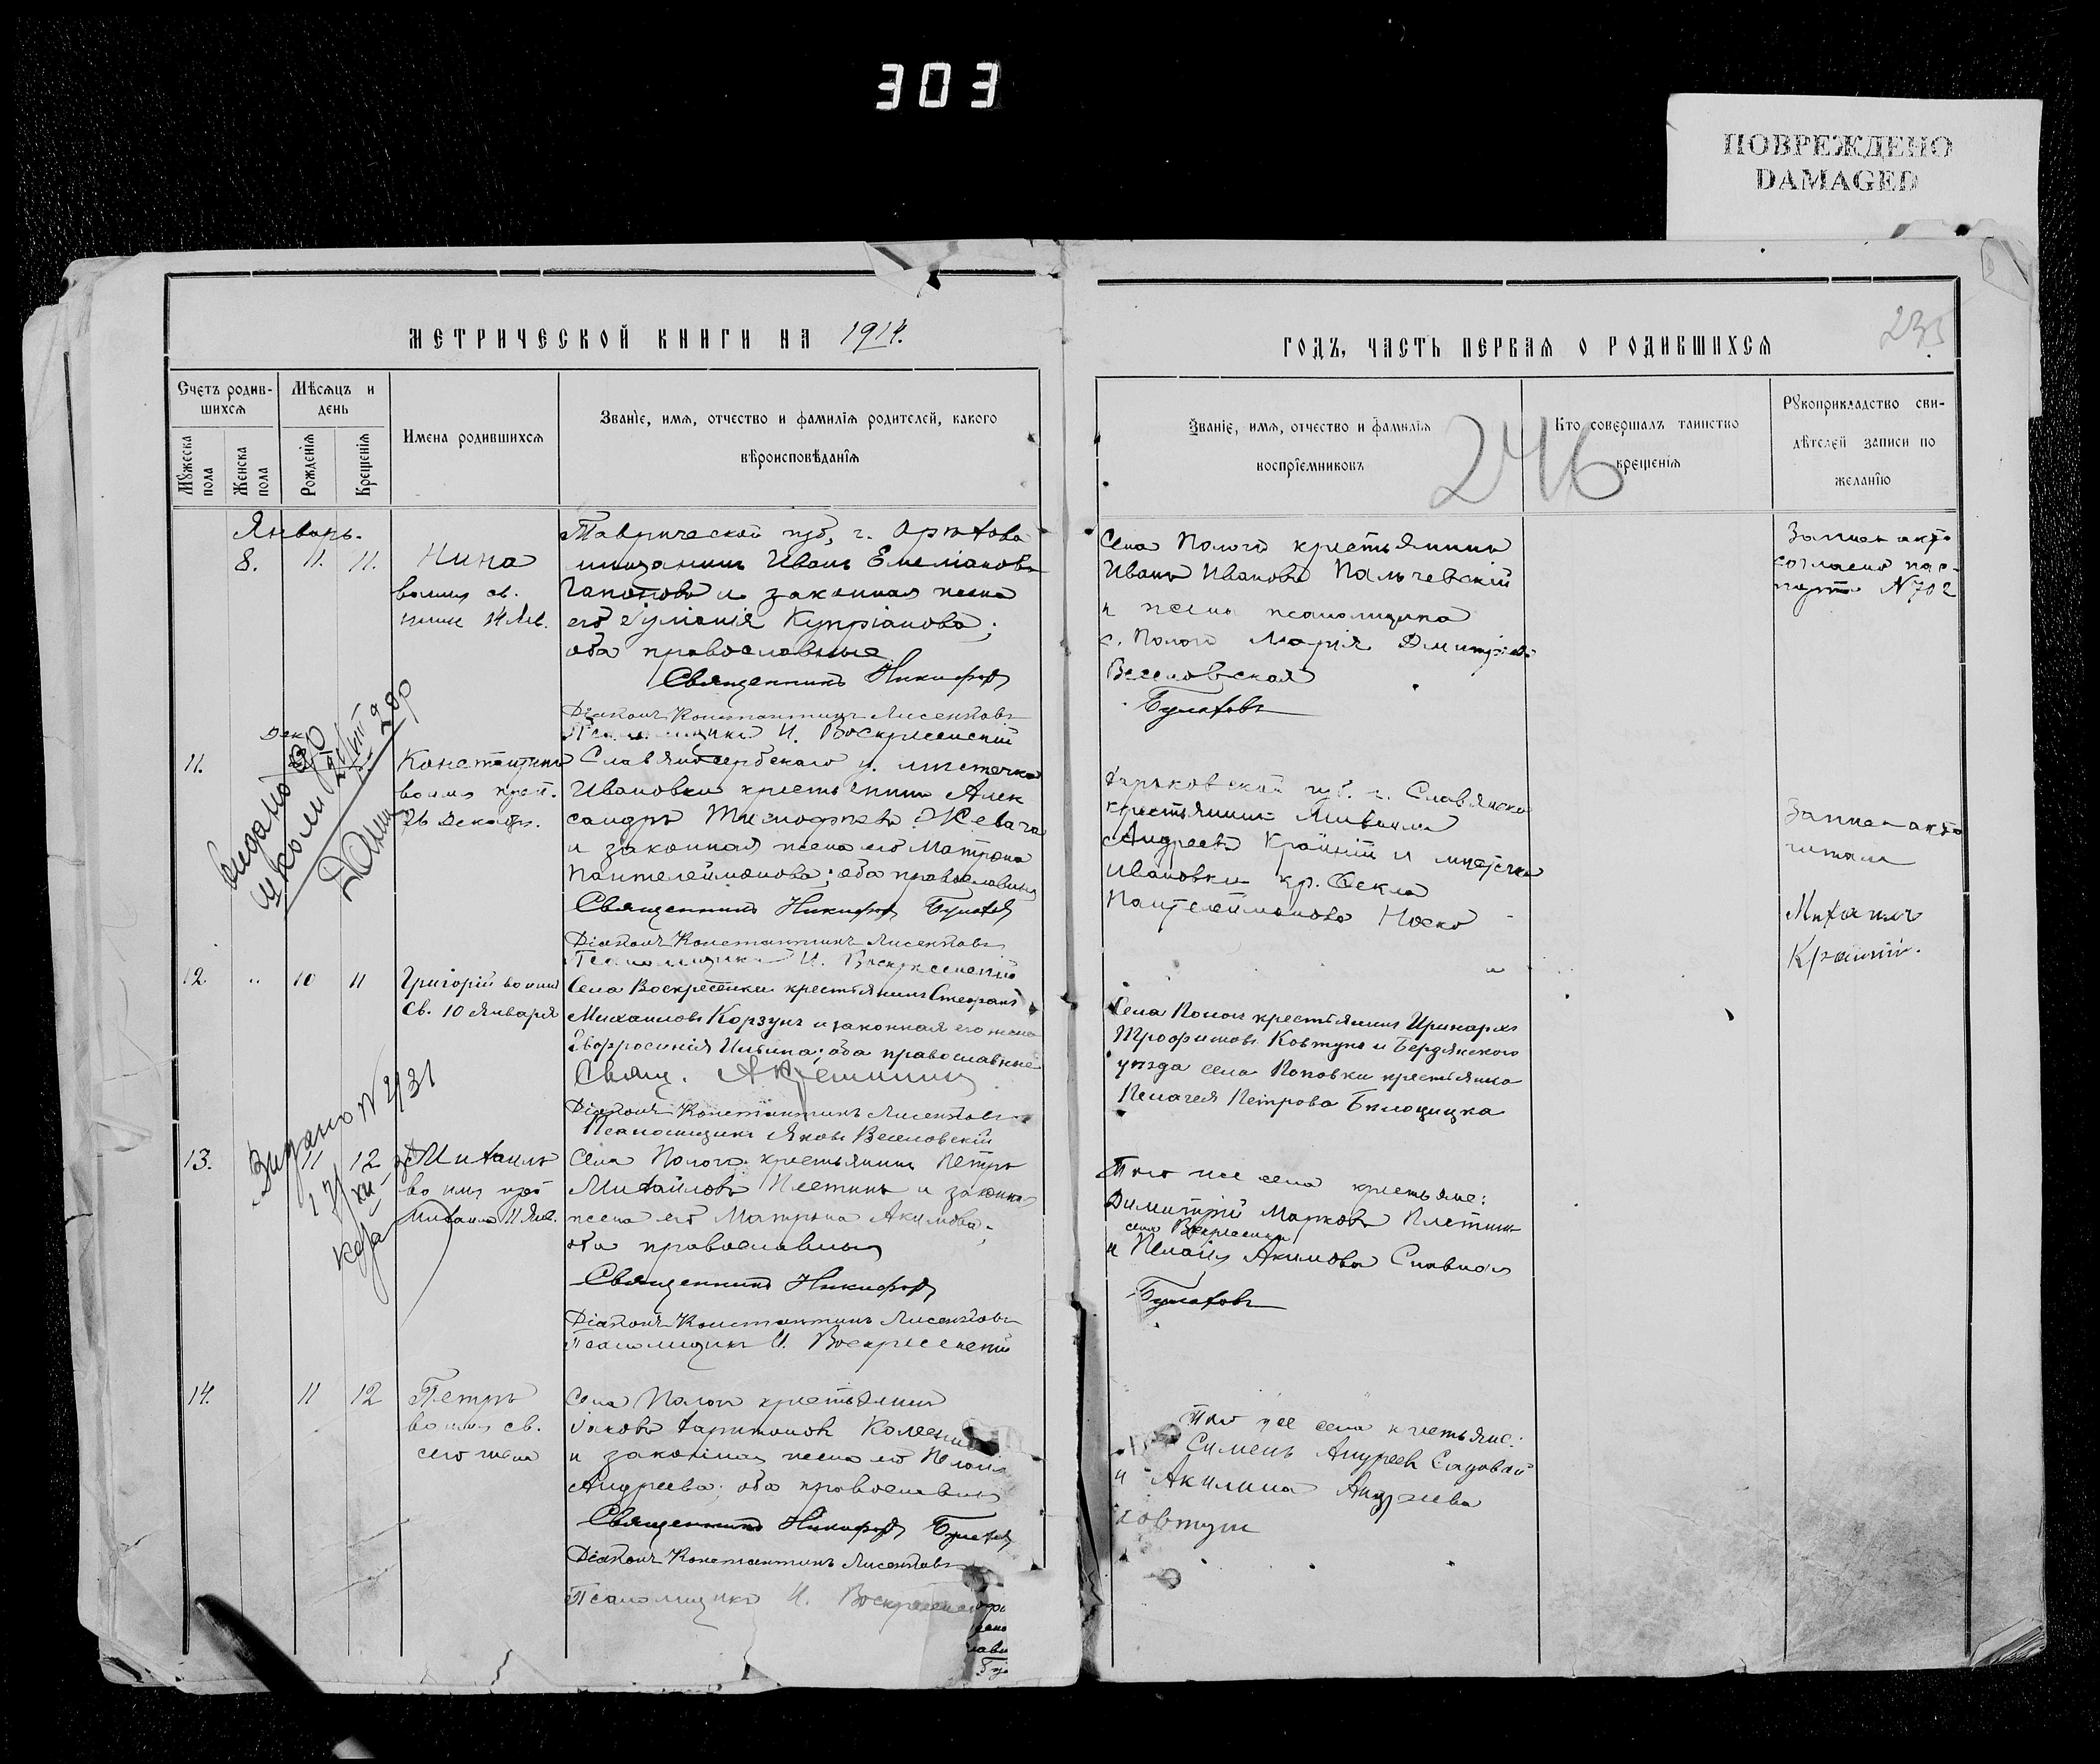 303
ПОВРЕЖДЕНО
DAMAGED
МЕТРИЧЕСКОЙ КНИГИ НА 1914.
ГОДЪ, ЧАСТЬ ПЕРВАЯ О РОДИВШИХСЯ
235
246
Счетъ родив-
шихся
Мѣсяцъ и
день
Мужеска
пола
Женска
пола
Рожденія
Крещенія
Имена родившихся
Званіе, имя, отчество и фамилія родителей, какого
вѣроисповѣданія
Званіе, имя, отчество и фамилія
воспріемниковъ
Кто совершалъ таинство
крещенія
Рукоприкладство сви-
дѣтелей записи по
желанію
Январь.
8. 11. 11.
Нина
во имя св.
14 Янв.
Таврической губ, г. Орѣхова
мѣщанинъ Иванъ Емеліановъ
Гапоновъ и законная жена
его Іуліанія Купріанова;
оба православные
Священникъ Никифоръ
Діаконъ Константинъ Лисенковъ
И. Воскресенскій
Села Пологъ крестьянинъ
Иванъ Ивановъ Пальчевскій
и жена псаломщика
с. Пологъ Марія Дмитріева
Веселовская
Булаховъ
согласно пас-
порта N 702
11.
Дек.
Константинъ
во имя преп.
26 Декабря.
Славяносербскаго у. мѣстечка
Ивановки крестьянинъ Алек
сандръ Тимофѣевъ Жевага
и законная жена его Матрона
Пантелеймонова; оба православные
Священникъ Никифоръ Булаховъ
Діаконъ Константинъ Лисенковъ
Псаломщикъ И. Воскресенскій
Харьковской губ. г. Славянска
крестьянинъ Михаилъ
Андреевъ Крайній и мѣстечка
Ивановки кр. Ѳекла
Пантелеймонова Носко
читалъ
Михаилъ
Крайній.
12. " 10 11
Григорій во имя
Св. 10 Января
Села Воскресенки крестьянинъ Стефанъ
Михаиловъ Корзунъ и законная его жена
Евфросинія Ильина; оба православные
Свящ.
Діаконъ Константинъ Лисенковъ
Псаломщикъ Яковъ Веселовскій
Села Пологъ крестьянинъ Иринархъ
Трофимовъ Ковтунъ и Бердянского
уѣзда села Поповки крестьянка
Пелагея Петрова Бѣлоцицка
Видано N 2131
13. 11 12
Михаилъ
во имя преп
Михаила 11 Янв.
Села Пологъ крестьянинъ Петръ
Михайловъ Плетинь и законная
жена его Матрона Акимова;
оба православные
Священникъ Никифоръ
Діаконъ Константинъ Лисенковъ
Псаломщикъ И. Воскресенскій
Того же села крестьяне:
Димитрій Марковъ Плетинь
села Воскресенки
и Пелагія Акимова Славная
Булаховъ
14. 11 12
Петръ
во имя св.
сего числа
Села Пологъ крестьянинъ
Іаковъ Харитоновъ
и законная жена его Пелагія
Андреева; оба православные
Священникъ Никифоръ Булаховъ
Діаконъ Константинъ Лисенковъ
Псаломщикъ И.
Того же села крестьяне:
Симеонъ Андреевъ Садовой
и Акилина Андреева
Ковтунъ